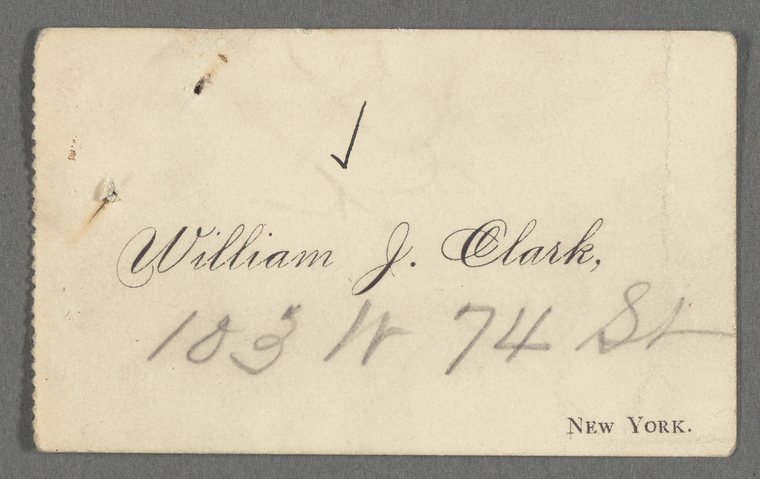 William J. Clark,
103 W 74 St
NEW YORK.